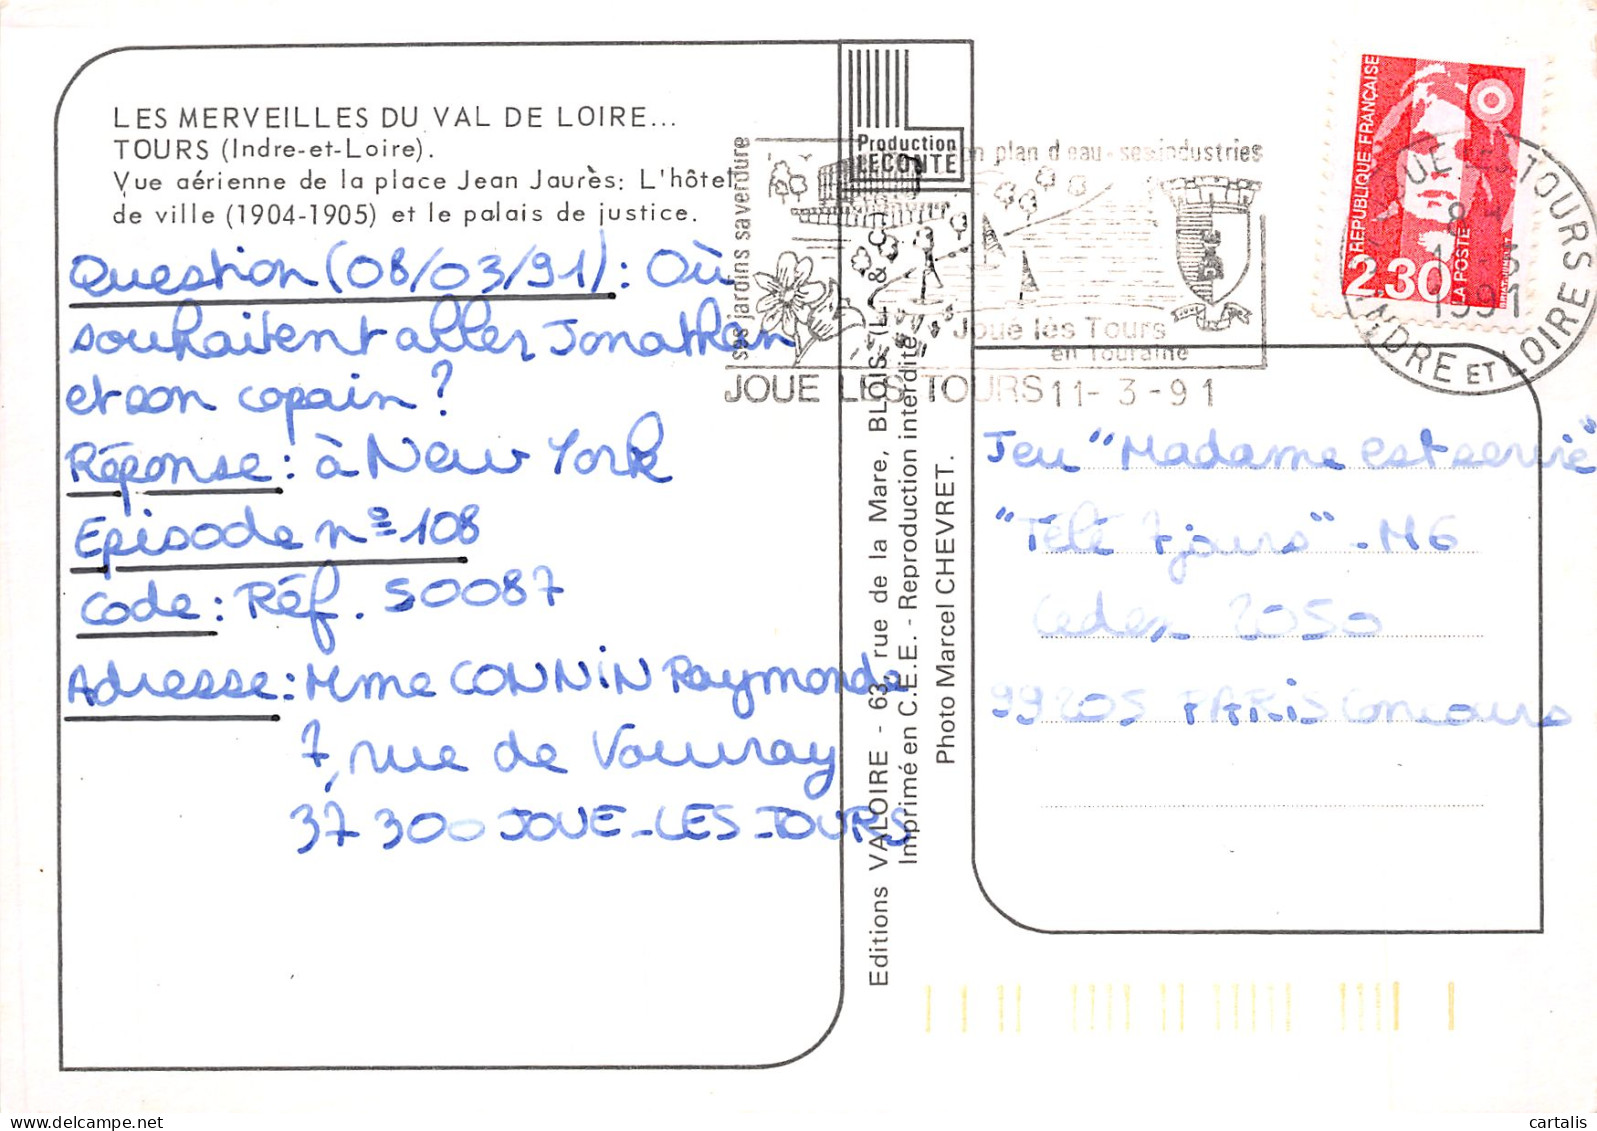 LES MERVEILLES DU VAL DE LOIRE...
TOURS (Indre-et-Loire).
Vue aérienne de la place Jean Jaurès: L'hôtel
de ville (1904-1905) et le palais de justice.
Question (08/03/91): Où
souhaitent aller Jonathan
et son copain ?
Réponse: à New York
Episode nº 108
Code: Réf. S0087
Adresse: Mme CONNiN Raymonde
7, rue de Vouvray
37300 JOUE-LES-TOURS
Production
LECONTE
Editions VALOIRE - 63, rue de la Mare, BLOIS (L. & C.)
Imprimé en C.E.E. - Reproduction interdite.
Photo Marcel CHEVRET.
ses jardins sa verdure
plan d'eau - ses industries
Joué lès Tours
en Touraine
JOUE LES TOURS 11-3-91
REPUBLIQUE FRANÇAISE
2,30
LA POSTE
JOUE LES TOURS
1991
INDRE ET LOIRE
Jeu "Madame est servie"
"Télé 7 jours" - M6
Cedex 2050
99205 PARiS Concours
cartalis